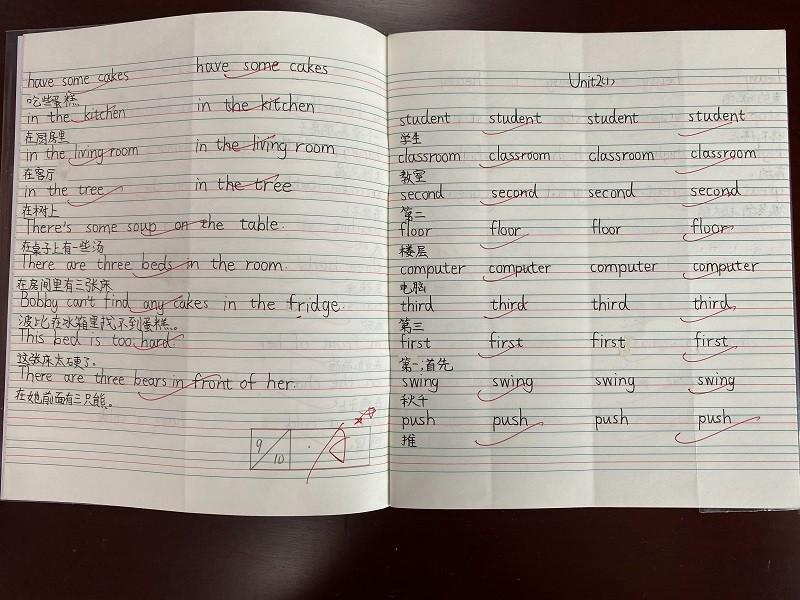 have some cakes have some cakes
吃些蛋糕
in the kitchen in the kitchen
在厨房里
in the living room in the living room
在客厅
in the tree in the tree
在树上
There's some soup on the table.
在桌子上有一些汤
There are three beds in the room.
在房间里有三张床
Bobby can't find any cakes in the fridge.
波比在冰箱里找不到蛋糕。
This bed is too hard.
这张床太硬了。
There are three bears in front of her.
在她前面有三只熊。
9/10
Unit2(1)
student student student student
学生
classroom classroom classroom classroom
教室
second second second second
第二
floor floor floor floor
楼层
computer computer computer computer
电脑
third third third third
第三
first first first first
第一;首先
swing swing swing swing
秋千
push push push push
推